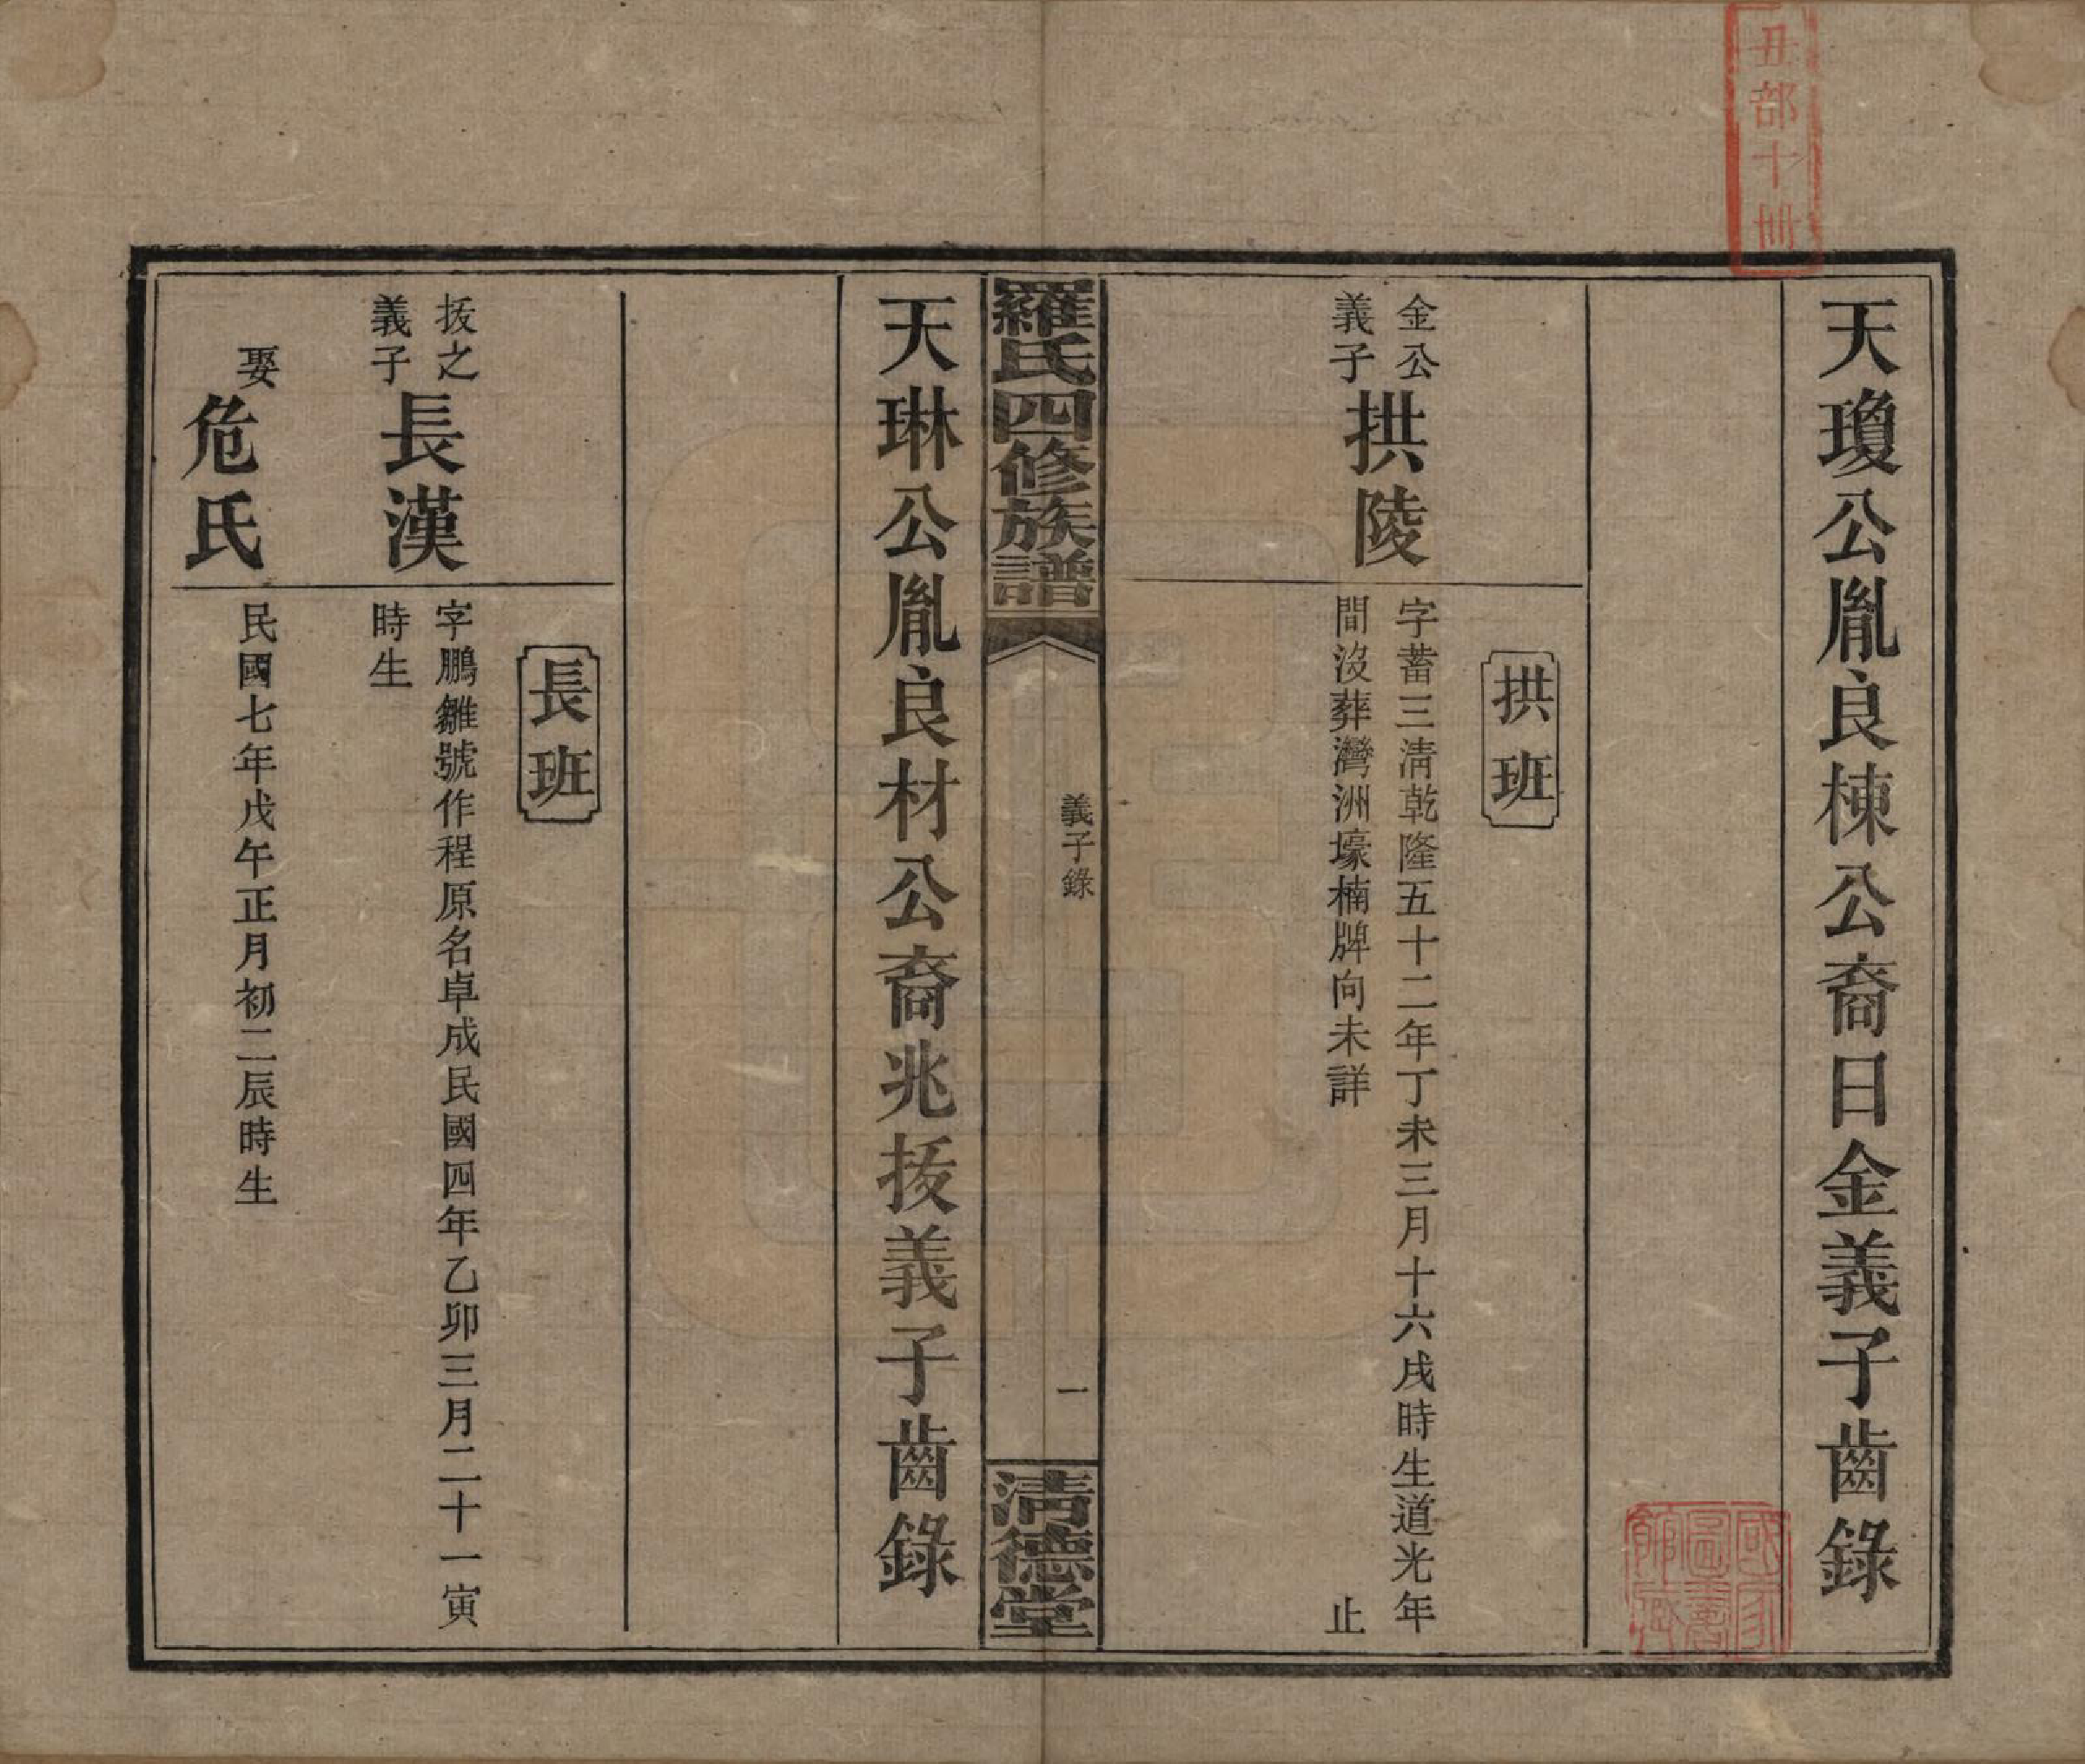 丑部十冊
天瓊公胤良棟公裔日金義子齒錄
拱班
金公
義子
拱陵
字蓄三清乾隆五十二年丁未三月十六戌時生道光年
間沒葬灣洲壕楠牌向未詳
止
羅氏四修族譜
義子錄
一
清德堂
天琳公胤良材公裔兆拔義子齒錄
長班
拔之
義子
長漢
字鵬雛號作程原名卓成民國四年乙卯三月二十一寅
時生
娶
危氏
民國七年戊午正月初二辰時生